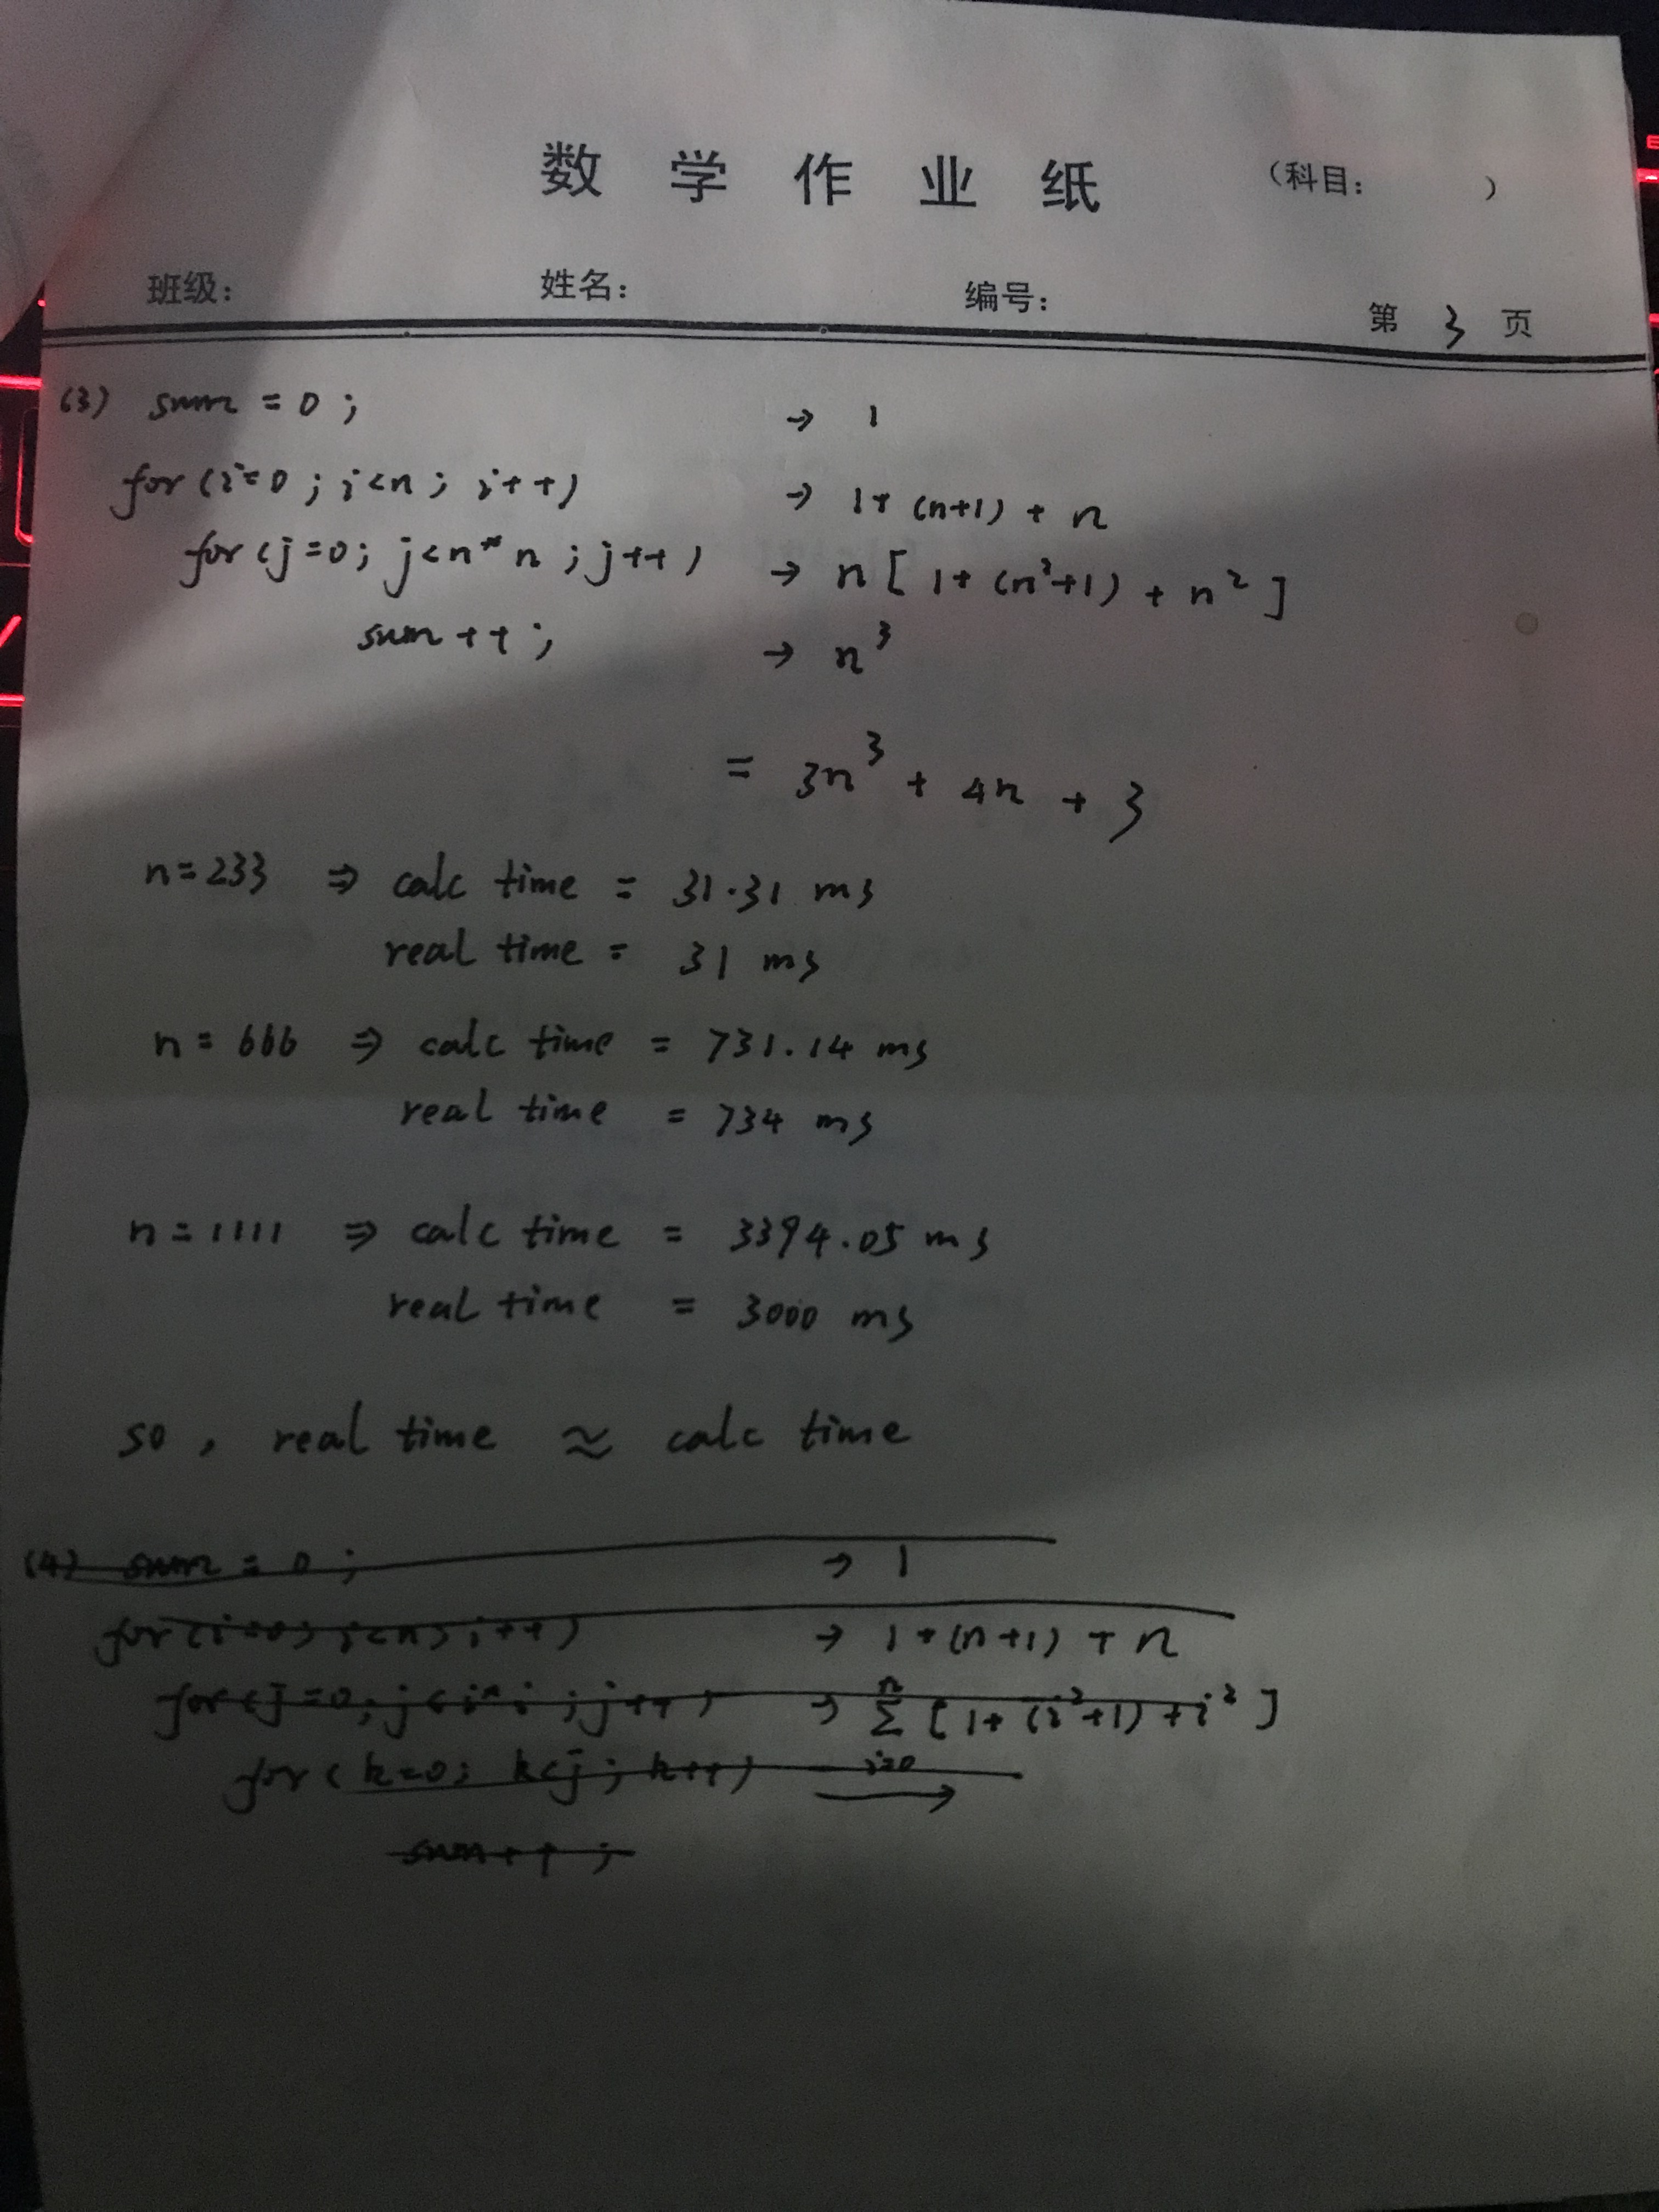 数学作业纸 (科目: )
班级: 姓名: 编号: 第 3 页
(3) sum = 0 ; → 1
for (i=0 ; i<n ; i++) → 1+ (n+1) + n
for (j=0 ; j<n*n ; j++) → n [ 1+ (n²+1) + n² ]
sum ++ ; → n³
= 3n³ + 4n + 3
n=233 ⇒ calc time = 31.31 ms
real time = 31 ms
n = 666 ⇒ calc time = 731.14 ms
real time = 734 ms
n = 1111 ⇒ calc time = 3394.05 ms
real time = 3000 ms
so , real time ≈ calc time
(4) sum = 0 ; → 1
for (i=0 ; i<n ; i++) → 1+(n+1) + n
for (j=0 ; j<i*i ; j++) → n Σ i=0 [ 1+ (i²+1) + i² ]
for ( k=0 ; k<j ; k++) →
sum++ ;